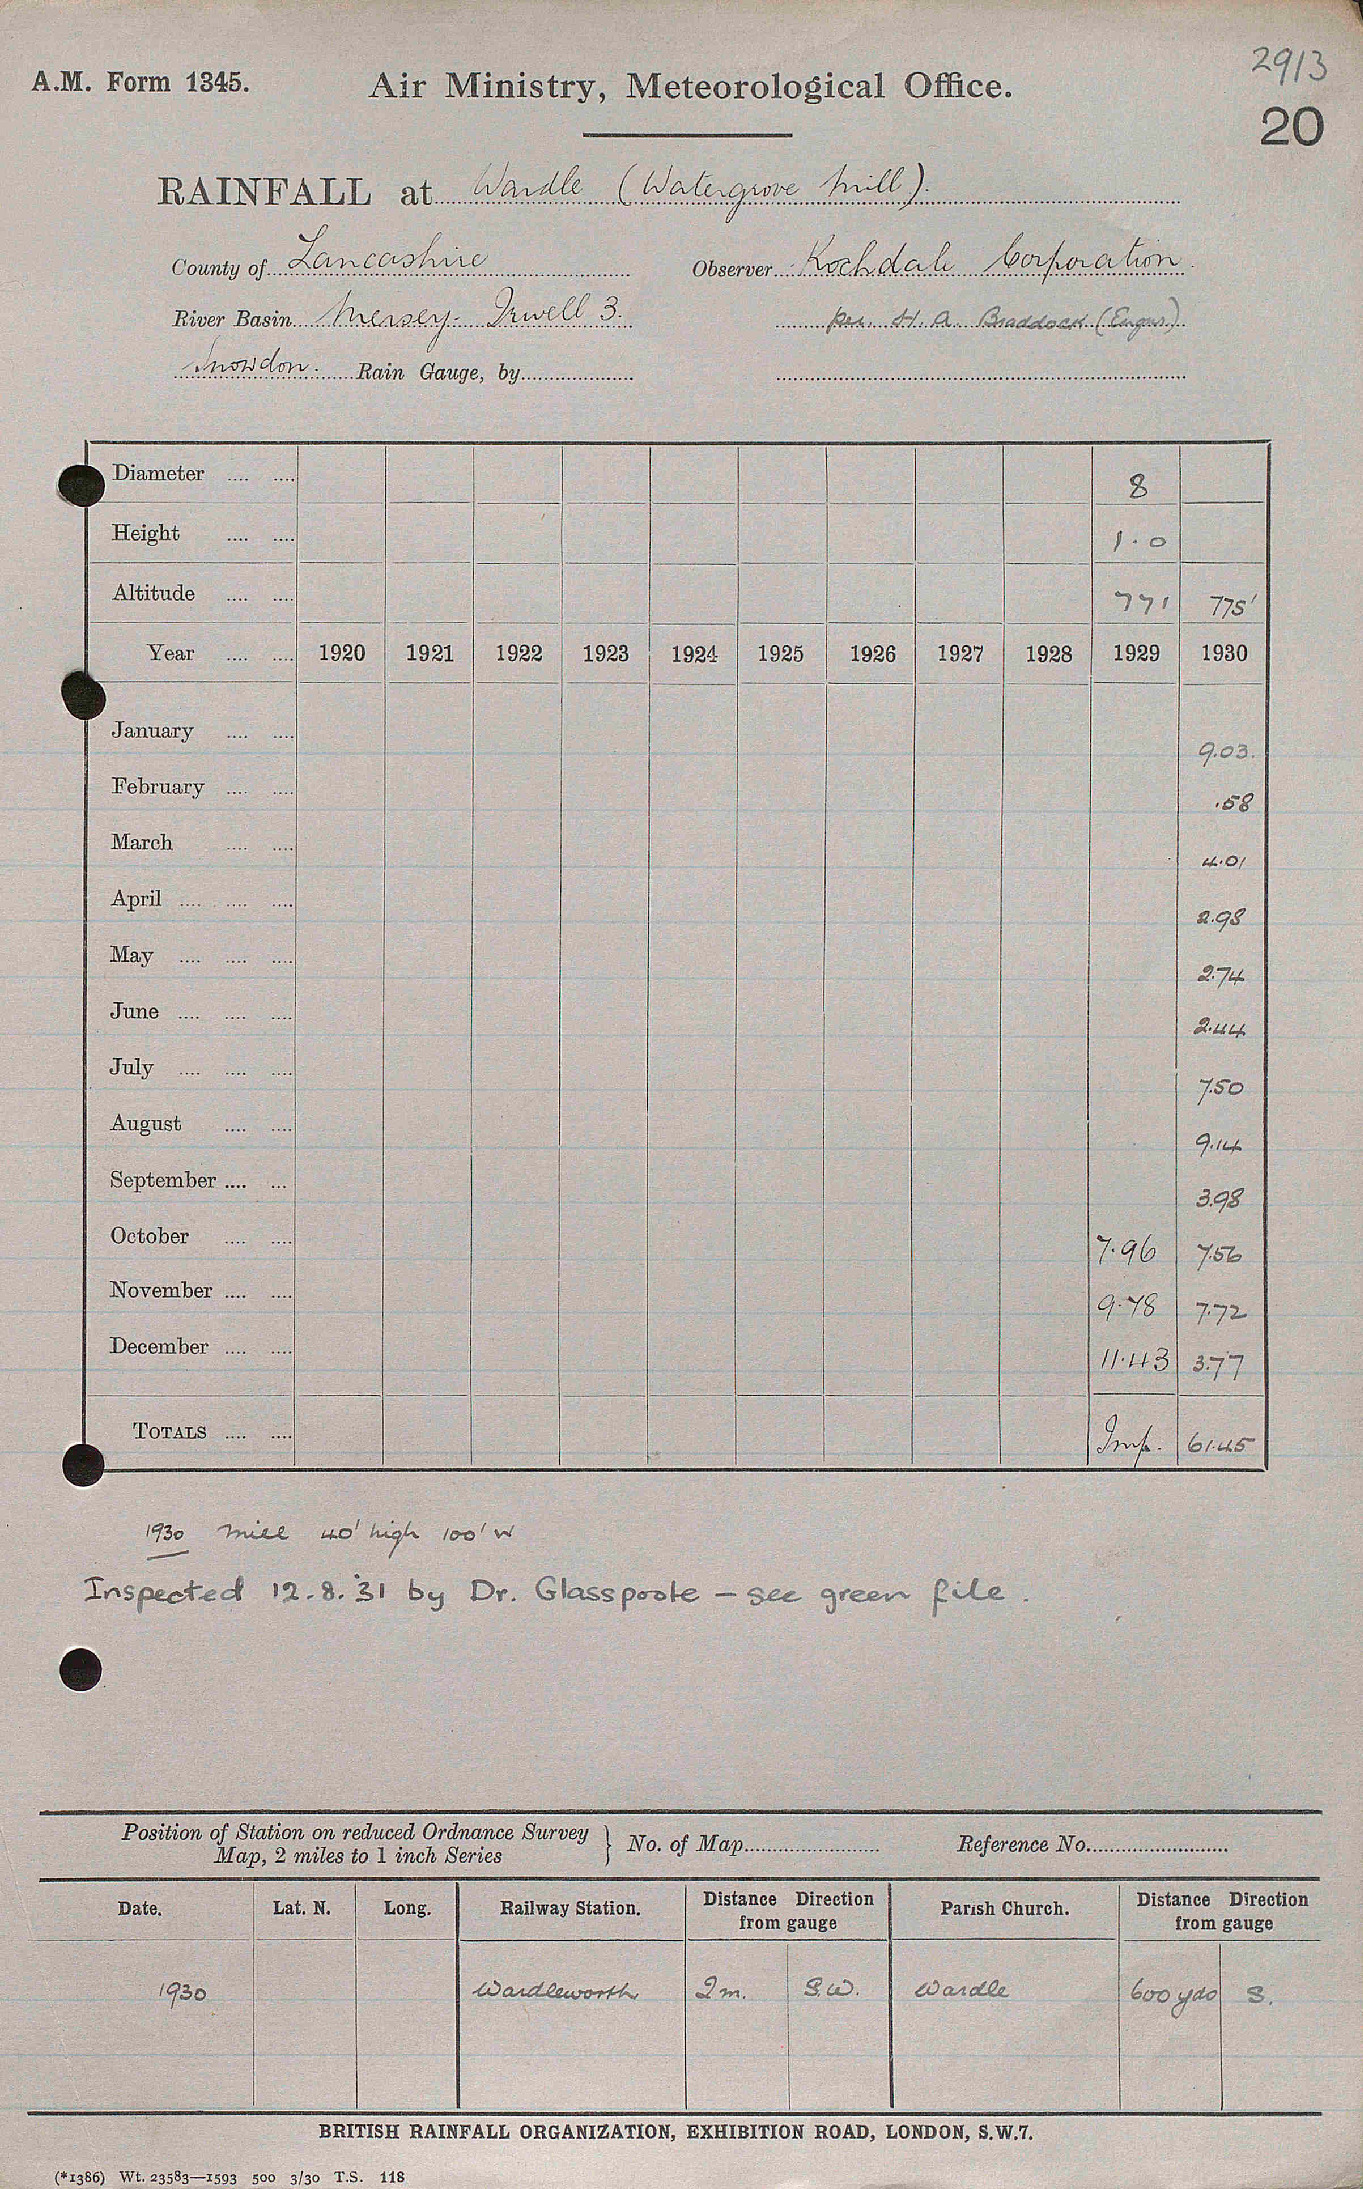 2913
A.M. Form 1345. Air Ministry, Meteorological Office.
20
RAINFALL at Wardle (Watergrove Mill).
County of Lancashire Observer Rochdale Corporation
River Basin Mersey- Irwell 3. per. H. A. Braddock (Engnr.)
Snowdon. Rain Gauge, by
Diameter .... .... 8
Height .... .... 1.0
Altitude .... .... 771 775'
Year .... .... 1920 1921 1922 1923 1924 1925 1926 1927 1928 1929 1930
January .... .... 9.03.
February .... .... .58
March .... .... 4.01
April .... .... .... 2.98
May .... .... .... 2.74
June .... .... .... 2.44
July .... .... .... 7.50
August .... .... 9.14
September .... ... 3.98
October .... .... 7.96 7.56
November .... .... 9.78 7.72
December .... .... 11.43 3.77
TOTALS .... .... Imp. 61.45
1930 Mill 40' high 100' W
Inspected 12.8.'31 by Dr. Glasspoole - see green file.
Position of Station on reduced Ordnance Survey
Map, 2 miles to 1 inch Series } No. of Map Reference No.
Date. Lat. N. Long. Railway Station. Distance Direction from gauge Parish Church. Distance Direction from gauge
1930 Wardleworth 2m. S.W. Wardle 600 yds S.
BRITISH RAINFALL ORGANIZATION, EXHIBITION ROAD, LONDON, S.W.7.
(*1386) Wt. 23583—1593 500 3/30 T.S. 118